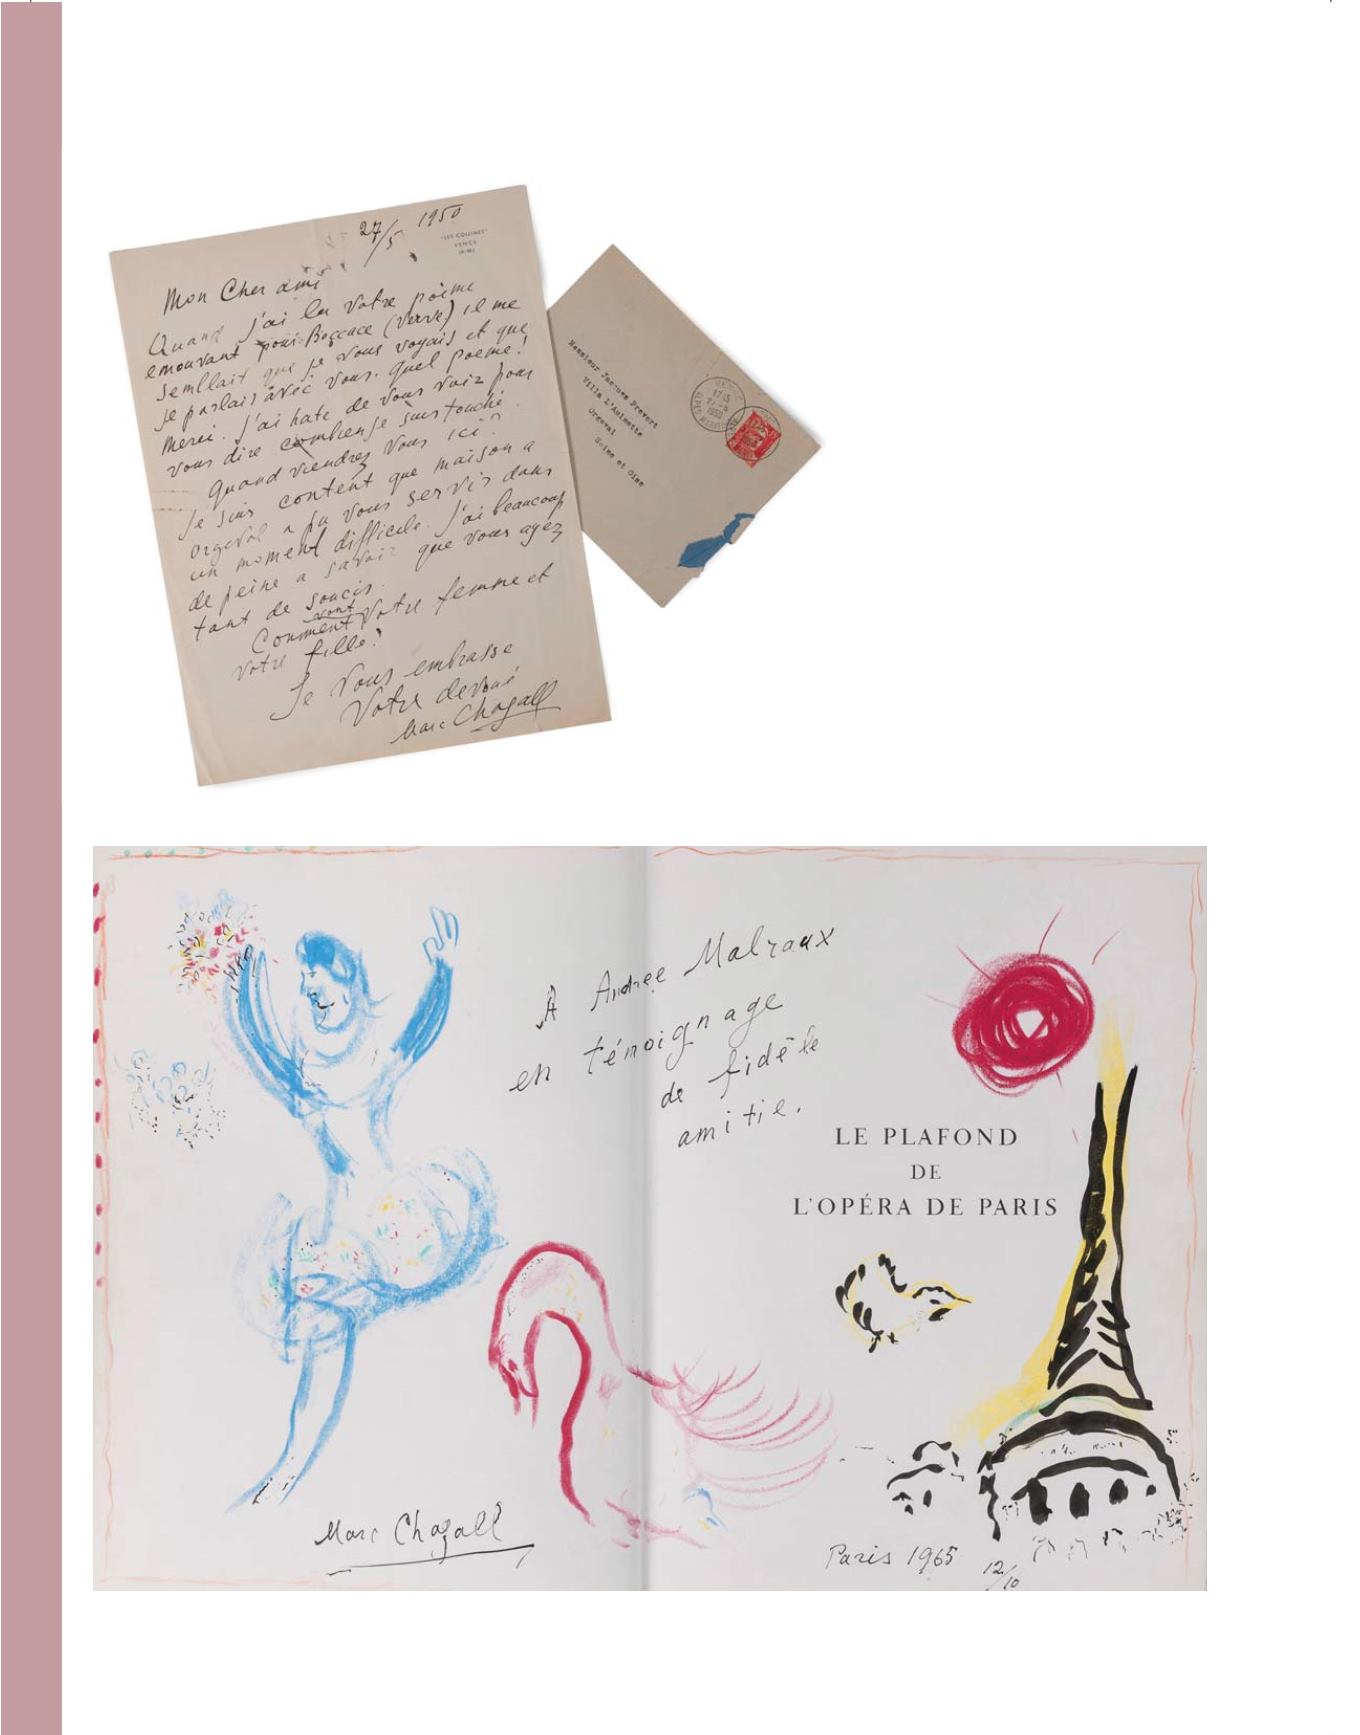 27/5 1950
"LES COLLINES"
VENCE
(A.-M.)
Mon Cher ami
Quand j'ai lu votre poème
emouvant pour Boccace (Verve) il me
semblait que je vous voyais et que
je parlais avec vous. Quel poeme!
Merci. J'ai hate de vous voir pour
vous dire combien je suis touché.
Quand viendrez vous ici?
Je suis content que maison a
orgeval a pu vous servir dans
un moment difficile. J'ai beaucoup
de peine a savoir que vous ayez
tant de soucis.
Comment vont votre femme et
votre fille?
Je vous embrasse
Votre devoué
Marc Chagall
Monsieur Jacques Prevert
Villa L'Aulnette
Orgeval
Seine et Oise
VENCE
17 15
1950
A Andree Malraux
en témoignage
de fidèle
amitie.
LE PLAFOND
DE
L'OPÉRA DE PARIS
Marc Chagall
Paris 1965 12/10